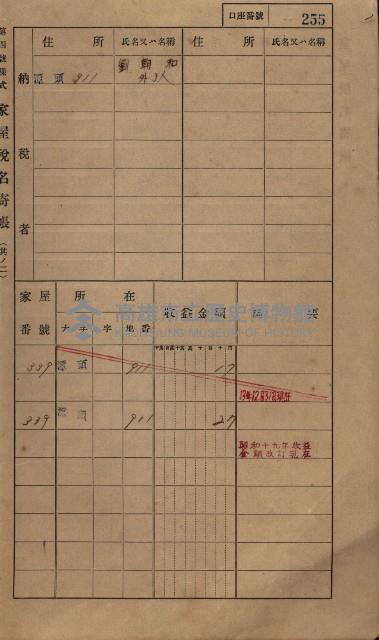 口座番號 255
第四號樣式 家屋稅名寄帳 (共ノ二)
納稅者
住所 氏名又ハ名稱 住所 氏名又ハ名稱
源頭 911 劉 和
外3人
家屋番號 所在 收益金額 摘要
大字 字 地番
339 源頭 911 17
339 源頭 911 27
昭和十九年收益
金額改訂現在
高雄市立歷史博物館
KAOHSIUNG MUSEUM OF HISTORY